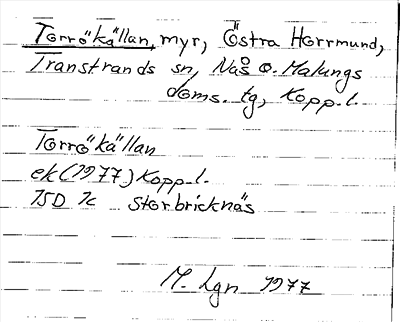 Torrökällan, myr, Östra Horrmund,
Transtrands sn, Nås o. Malungs
doms. tg, Kopp.l.
Torrökällan
ek (1977) Kopp.l.
15D 7c Storbricknäs
M. Lgn 1977